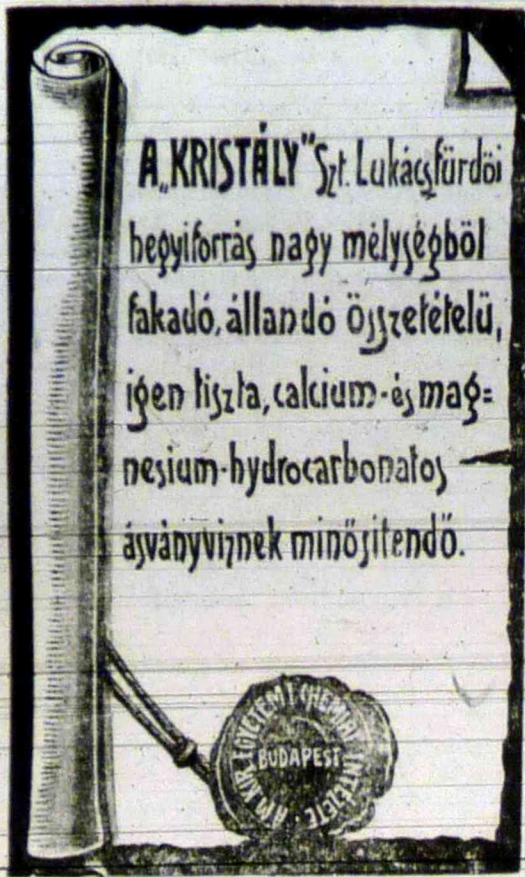 A „KRISTÁLY" Szt. Lukácsfürdői
hegyiforrás nagy mélységből
fakadó, állandó összetételű,
igen tiszta, calcium-és mag=
nesium-hydrocarbonatos
ásványviznek minősitendő.
EGYETEMI CHEMIAI INTÉZETE
BUDAPEST